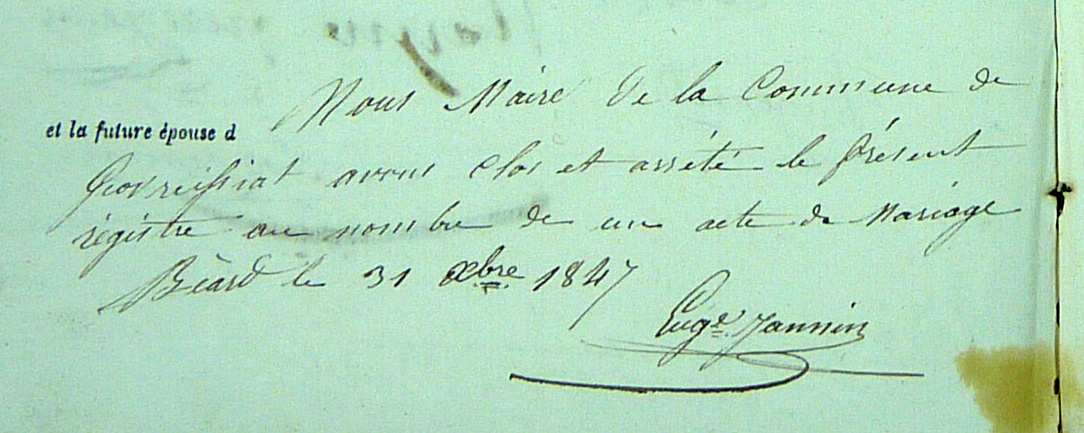 Nous Maire de la Commune de
et la future épouse d
Geovreissiat avons clos et arrêté le présent
régistre au nombre de un acte de Mariage
Béard le 31 Xbre 1847
Eug.e Jannin